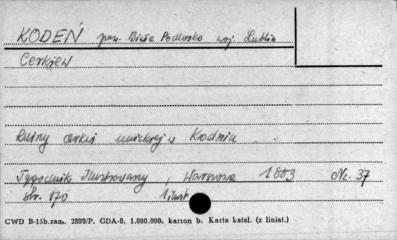 KODEŃ pow. Biała Podlaska woj. Lublin
Cerkiew
Ruiny cerkwi unickiej w Kodniu
Tygodnik Ilustrowany, Warszawa 1883 Nr. 37
str. 170 1 ilustr.
CWD B-15b.zam. 2899/P. GDA-8. 1.000.000. karton b. Karta katal. (z liniat.)